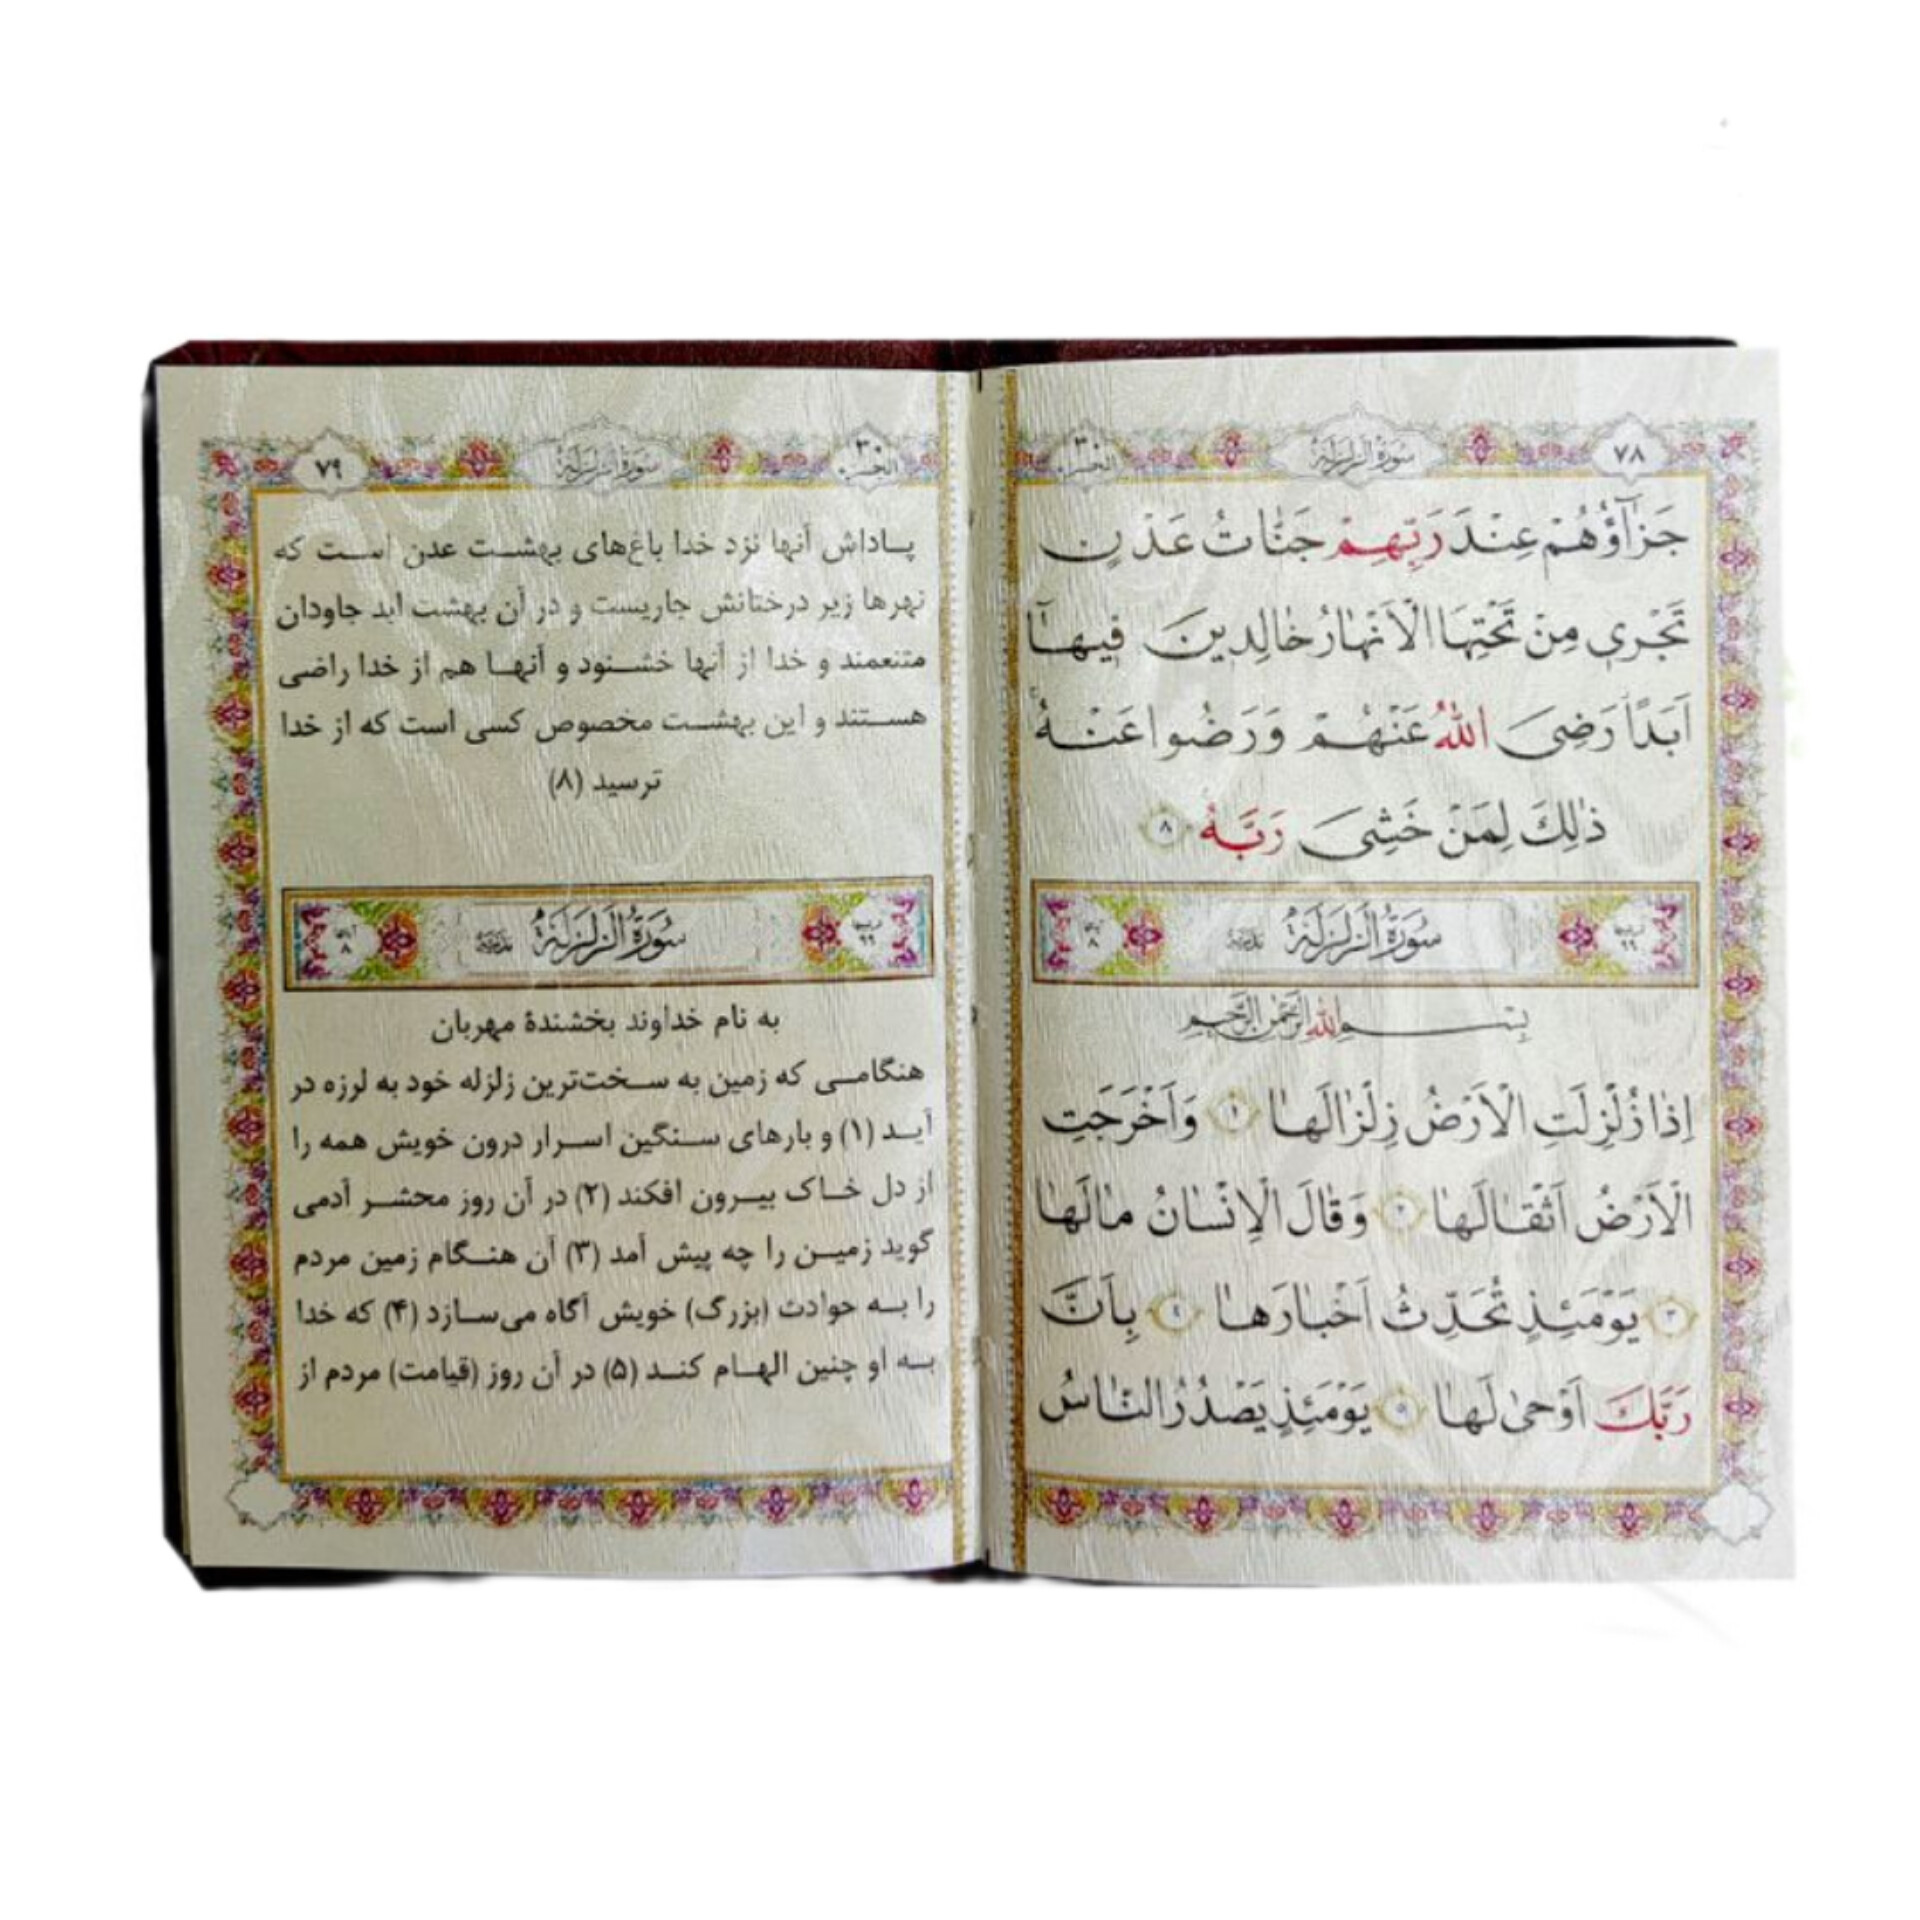 ٧٨
سورة الزلزلة
٣٠
الجزء
جَزٰٓاؤُهُمْ عِنْدَ رَبِّهِمْ جَنّٰاتُ عَدْنٍ
تَجْرِی مِنْ تَحْتِهَا الْاَنْهٰارُ خٰالِدِینَ فِیهٰٓا
اَبَدًا رَضِیَ اللّٰهُ عَنْهُمْ وَ رَضُوا عَنْهُ
ذٰلِكَ لِمَنْ خَشِیَ رَبَّهُ ٨
سُورَةُ الزَّلزَلَة مدنية
٩٩
٨
بِسْمِ اللّٰهِ الرَّحْمٰنِ الرَّحِیمِ
اِذٰا زُلْزِلَتِ الْاَرْضُ زِلْزٰالَهٰا ١ وَ اَخْرَجَتِ
الْاَرْضُ اَثْقٰالَهٰا ٢ وَ قٰالَ الْاِنْسٰانُ مٰا لَهٰا
٣ یَوْمَئِذٍ تُحَدِّثُ اَخْبٰارَهٰا ٤ بِاَنَّ
رَبَّكَ اَوْحیٰ لَهٰا ٥ یَوْمَئِذٍ یَصْدُرُ النّٰاسُ
٣٠
الجزء
سورة الزلزلة
٧٩
پاداش آنها نزد خدا باغ‌های بهشت عدن است که
نهرها زیر درختانش جاریست و در آن بهشت ابد جاودان
متنعمند و خدا از آنها خشنود و آنها هم از خدا راضی
هستند و این بهشت مخصوص کسی است که از خدا
ترسید (۸)
سُورَةُ الزَّلزَلَة مدنية
٩٩
٨
به نام خداوند بخشندۀ مهربان
هنگامی که زمین به سخت‌ترین زلزله خود به لرزه در
آید (۱) و بارهای سنگین اسرار درون خویش همه را
از دل خاک بیرون افکند (۲) در آن روز محشر آدمی
گوید زمین را چه پیش آمد (۳) آن هنگام زمین مردم
را به حوادث (بزرگ) خویش آگاه می‌سازد (۴) که خدا
به او چنین الهام کند (۵) در آن روز (قیامت) مردم از